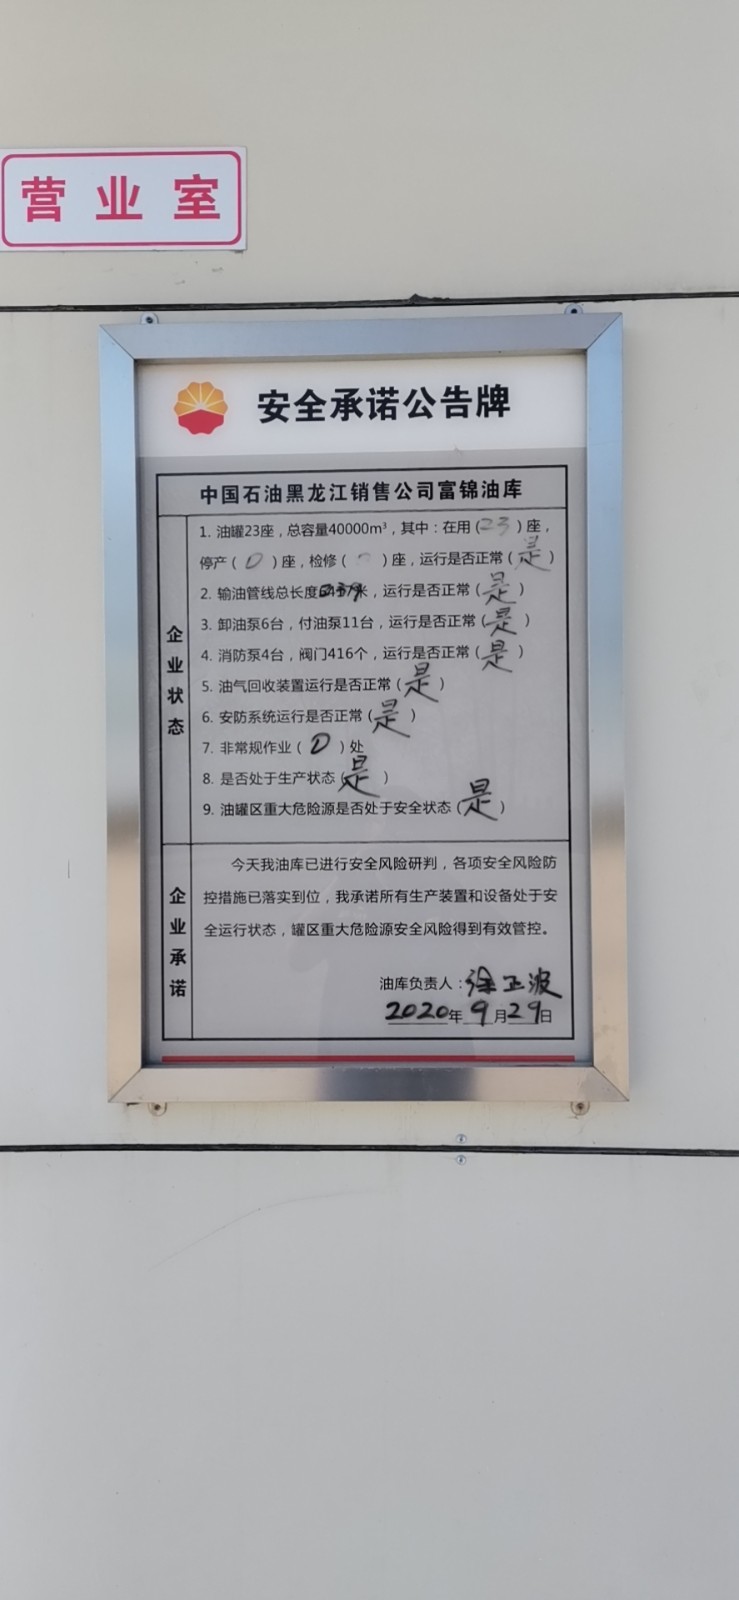 营业室
安全承诺公告牌
中国石油黑龙江销售公司富锦油库
企业状态
1. 油罐23座，总容量40000m³，其中：在用（23）座，
停产（0）座，检修（ ）座，运行是否正常（是）
2. 输油管线总长度米，运行是否正常（是）
3. 卸油泵6台，付油泵11台，运行是否正常（是）
4. 消防泵4台，阀门416个，运行是否正常（是）
5. 油气回收装置运行是否正常（是）
6. 安防系统运行是否正常（是）
7. 非常规作业（0）处
8. 是否处于生产状态（是）
9. 油罐区重大危险源是否处于安全状态（是）
企业承诺
今天我油库已进行安全风险研判，各项安全风险防
控措施已落实到位，我承诺所有生产装置和设备处于安
全运行状态，罐区重大危险源安全风险得到有效管控。
油库负责人：徐正波
2020年9月29日